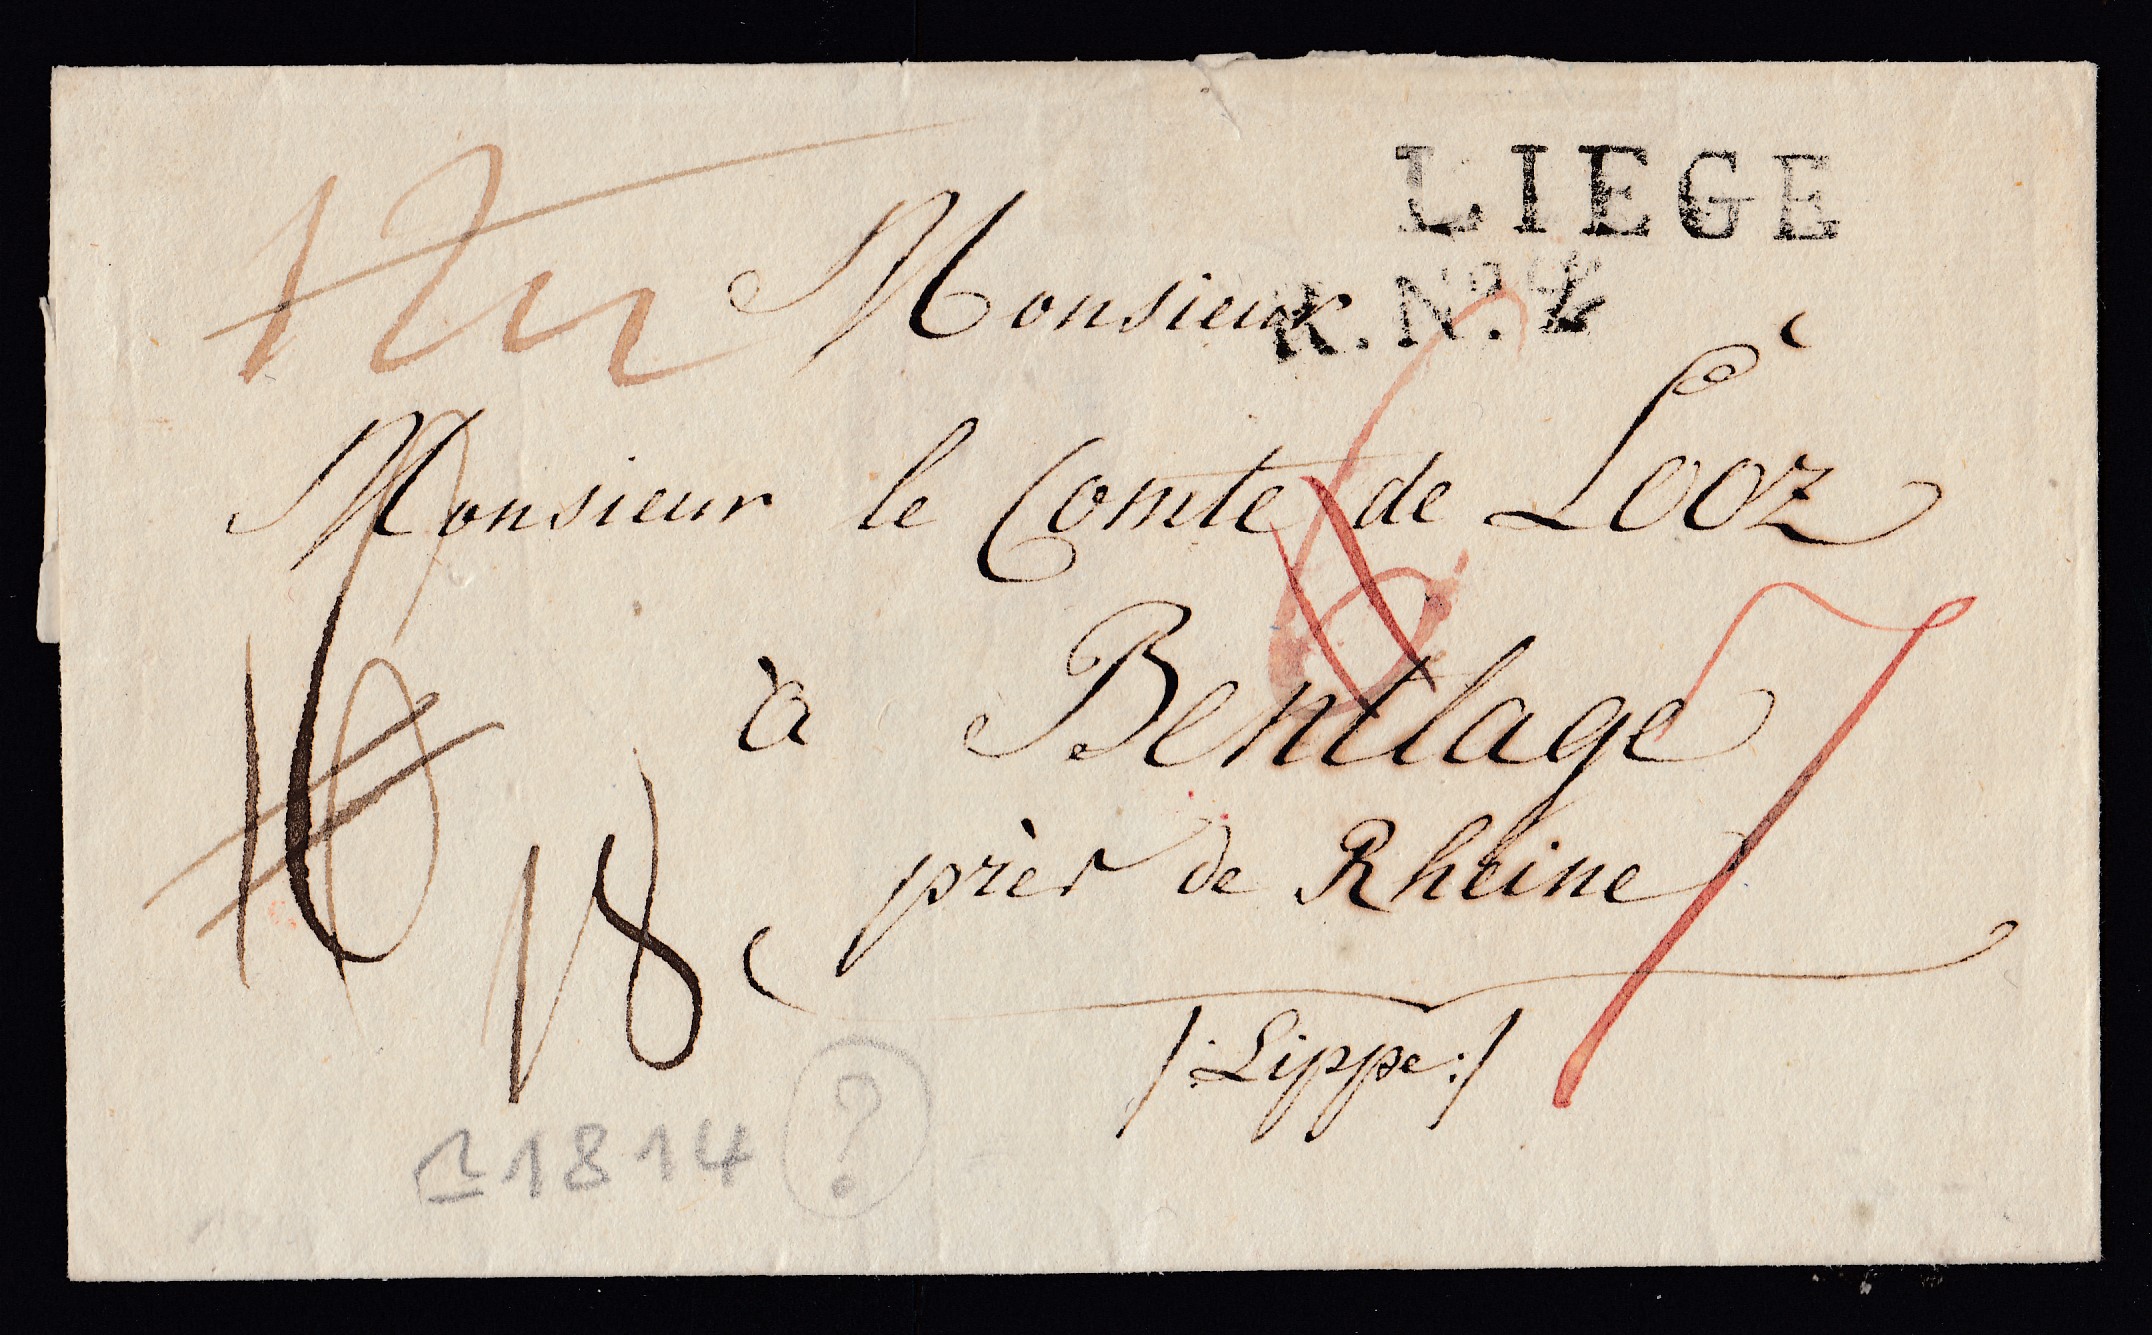 LIEGE
R. No. 4
Monsieur
Monsieur le Comte de Looz
à Bentlage
près de Rheine
/:Lippe:/
16
18
6
7
1814 ?